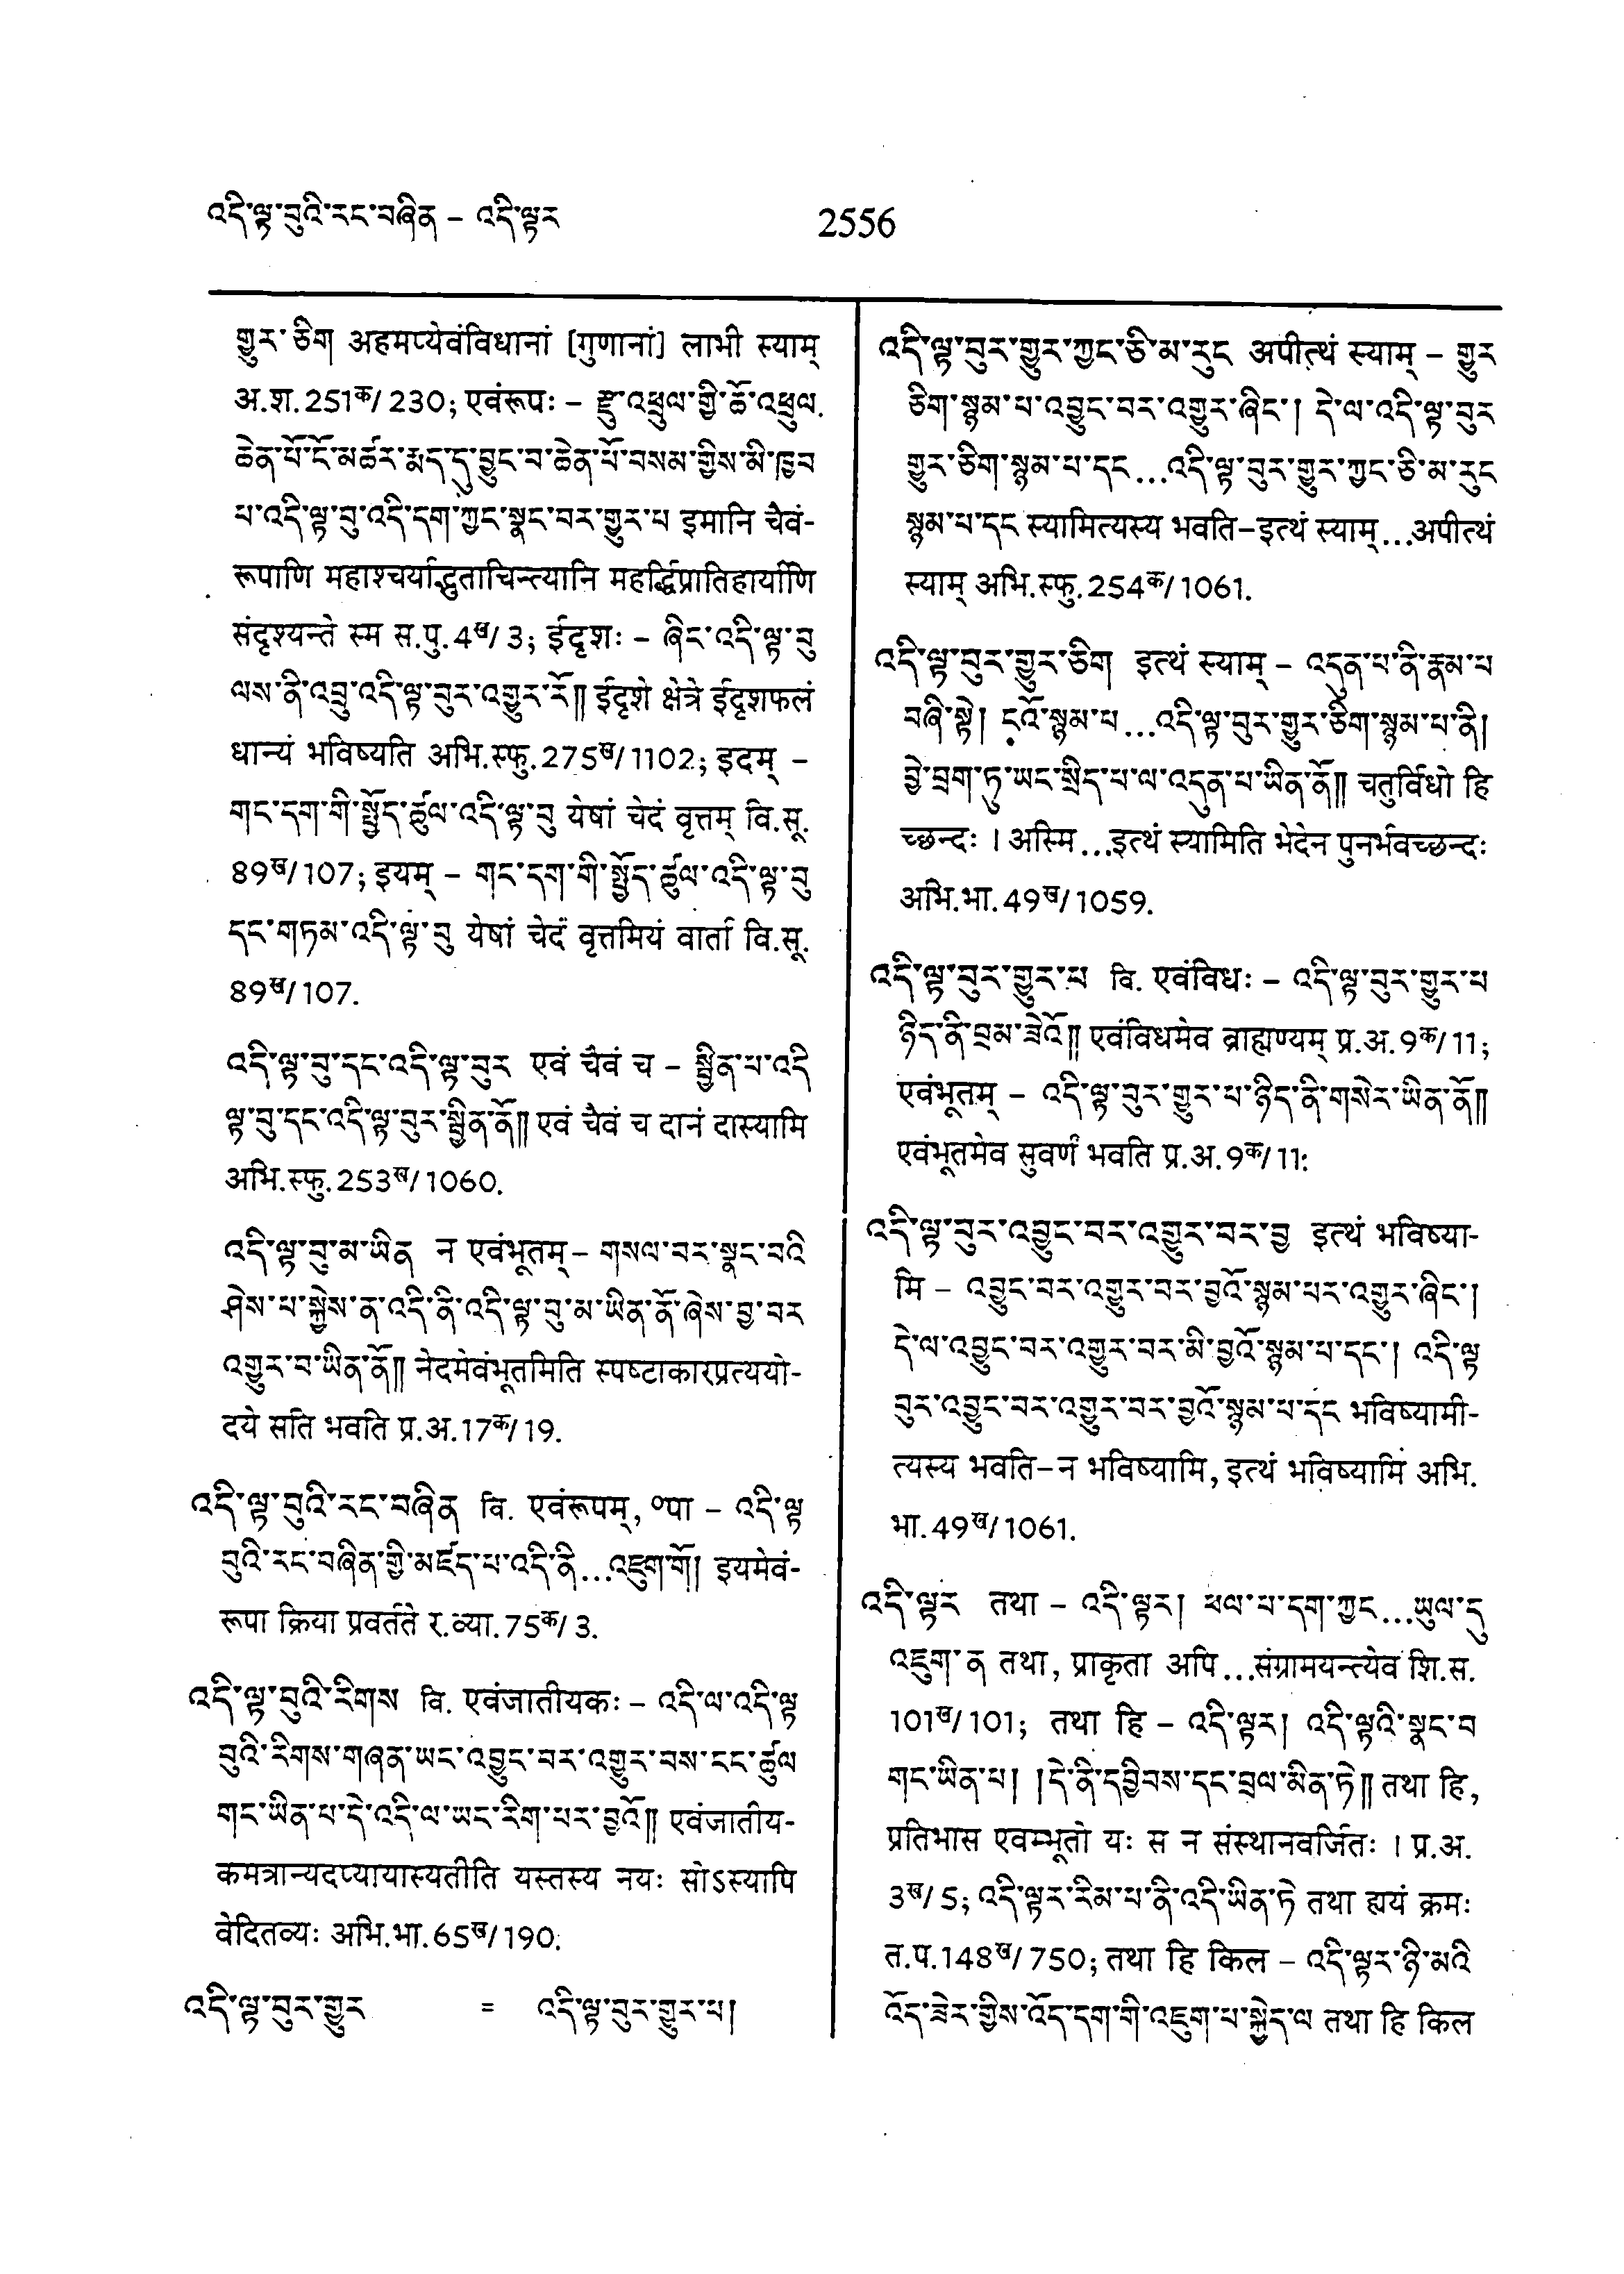 འདི་ལྟ་བུའི་རང་བཞིན – འདི་ལྟར
2556
གྱུར་ཅིག अहमप्येवंविधानां [गुणानां] लाभी स्याम्
अ.श.251क/230; एवंरूपः – རྫུ་འཕྲུལ་གྱི་ཆོ་འཕྲུལ་
ཆེན་པོ་ངོ་མཚར་རྨད་དུ་བྱུང་བ་ཆེན་པོ་བསམ་གྱིས་མི་ཁྱབ
པ་འདི་ལྟ་བུ་འདི་དག་ཀྱང་སྣང་བར་གྱུར་པ इमानि चैवं-
रूपाणि महाश्चर्याद्भुताचिन्त्यानि महर्द्धिप्रातिहार्याणि
संदृश्यन्ते स्म स.पु.4ख/3; ईदृशः – ཞིང་འདི་ལྟ་བུ
ལས་ནི་འབྲུ་འདི་ལྟ་བུར་འགྱུར་རོ༎ ईदृशे क्षेत्रे ईदृशफलं
धान्यं भविष्यति अभि.स्फु.275ख/1102; इदम् –
གང་དག་གི་སྤྱོད་ཚུལ་འདི་ལྟ་བུ येषां चेदं वृत्तम् वि.सू.
89ख/107; इयम् – གང་དག་གི་སྤྱོད་ཚུལ་འདི་ལྟ་བུ
དང་གཏམ་འདི་ལྟ་བུ येषां चेदं वृत्तमियं वार्ता वि.सू.
89ख/107.
འདི་ལྟ་བུ་དང་འདི་ལྟ་བུར एवं चैवं च – སྦྱིན་པ་འདི
ལྟ་བུ་དང་འདི་ལྟ་བུར་སྦྱིན་ནོ༎ एवं चैवं च दानं दास्यामि
अभि.स्फु.253ख/1060.
འདི་ལྟ་བུ་མ་ཡིན न एवंभूतम् – གསལ་བར་སྣང་བའི
ཤེས་པ་སྐྱེས་ན་འདི་ནི་འདི་ལྟ་བུ་མ་ཡིན་ནོ་ཞེས་བྱ་བར
འགྱུར་བ་ཡིན་ནོ༎ नेदमेवंभूतमिति स्पष्टाकारप्रत्ययो-
दये सति भवति प्र.अ.17क/19.
འདི་ལྟ་བུའི་རང་བཞིན वि. एवंरूपम्, ०पा – འདི་ལྟ
བུའི་རང་བཞིན་གྱི་མཛད་པ་འདི་ནི...འཇུག་གོ། इयमेवं-
रूपा क्रिया प्रवर्तते र.व्या.75क/3.
འདི་ལྟ་བུའི་རིགས वि. एवंजातीयकः – འདི་ལ་འདི་ལྟ
བུའི་རིགས་གཞན་ཡང་འབྱུང་བར་འགྱུར་བས་ངང་ཚུལ
གང་ཡིན་པ་དེ་འདི་ལ་ཡང་རིག་པར་བྱའོ༎ एवंजातीय-
कमत्रान्यदप्यायास्यतीति यस्तस्य नयः सोऽस्यापि
वेदितव्यः अभि.भा.65ख/190.
འདི་ལྟ་བུར་གྱུར = འདི་ལྟ་བུར་གྱུར་པ།
འདི་ལྟ་བུར་གྱུར་ཀྱང་ཅི་མ་རུང अपीत्थं स्याम् – གྱུར
ཅིག་སྙམ་པ་འབྱུང་བར་འགྱུར་ཞིང་། དེ་ལ་འདི་ལྟ་བུར
གྱུར་ཅིག་སྙམ་པ་དང...འདི་ལྟ་བུར་གྱུར་ཀྱང་ཅི་མ་རུང
སྙམ་པ་དང स्यामित्यस्य भवति–इत्थं स्याम्...अपीत्थं
स्याम् अभि.स्फु.254क/1061.
འདི་ལྟ་བུར་གྱུར་ཅིག इत्थं स्याम् – འདུན་པ་ནི་རྣམ་པ
བཞི་སྟེ། ངའོ་སྙམ་པ...འདི་ལྟ་བུར་གྱུར་ཅིག་སྙམ་པ་ནི།
བྱེ་བྲག་ཏུ་ཡང་སྲིད་པ་ལ་འདུན་པ་ཡིན་ནོ༎ चतुर्विधो हि
च्छन्दः । अस्मि...इत्थं स्यामिति भेदेन पुनर्भवच्छन्दः
अभि.भा.49ख/1059.
འདི་ལྟ་བུར་གྱུར་པ वि. एवंविधः – འདི་ལྟ་བུར་གྱུར་པ
ཉིད་ནི་བྲམ་ཟེའོ༎ एवंविधमेव ब्राह्मण्यम् प्र.अ.9क/11;
एवंभूतम् – འདི་ལྟ་བུར་གྱུར་པ་ཉིད་ནི་གསེར་ཡིན་ནོ༎
एवंभूतमेव सुवर्णं भवति प्र.अ.9क/11.
འདི་ལྟ་བུར་འབྱུང་བར་འགྱུར་བར་བྱ इत्थं भविष्या-
मि – འབྱུང་བར་འགྱུར་བར་བྱའོ་སྙམ་པར་འགྱུར་ཞིང་།
དེ་ལ་འབྱུང་བར་འགྱུར་བར་མི་བྱའོ་སྙམ་པ་དང་། འདི་ལྟ
བུར་འབྱུང་བར་འགྱུར་བར་བྱའོ་སྙམ་པ་དང भविष्यामी-
त्यस्य भवति–न भविष्यामि, इत्थं भविष्यामि अभि.
भा.49ख/1061.
འདི་ལྟར तथा – འདི་ལྟར། ཕལ་པ་དག་ཀྱང...ཡུལ་དུ
འཇུག་ན तथा, प्राकृता अपि...संग्रामयन्त्येव शि.स.
101ख/101; तथा हि – འདི་ལྟར། འདི་ལྟའི་སྣང་བ
གང་ཡིན་པ། །དེ་ནི་དབྱིབས་དང་བྲལ་མིན་ཏེ༎ तथा हि,
प्रतिभास एवम्भूतो यः स न संस्थानवर्जितः । प्र.अ.
3ख/5; འདི་ལྟར་རིམ་པ་ནི་འདི་ཡིན་ཏེ तथा ह्ययं क्रमः
त.प.148ख/750; तथा हि किल – འདི་ལྟར་ཉི་མའི
འོད་ཟེར་གྱིས་འོད་དག་གི་འཇུག་པ་སྐྱེད་ལ तथा हि किल